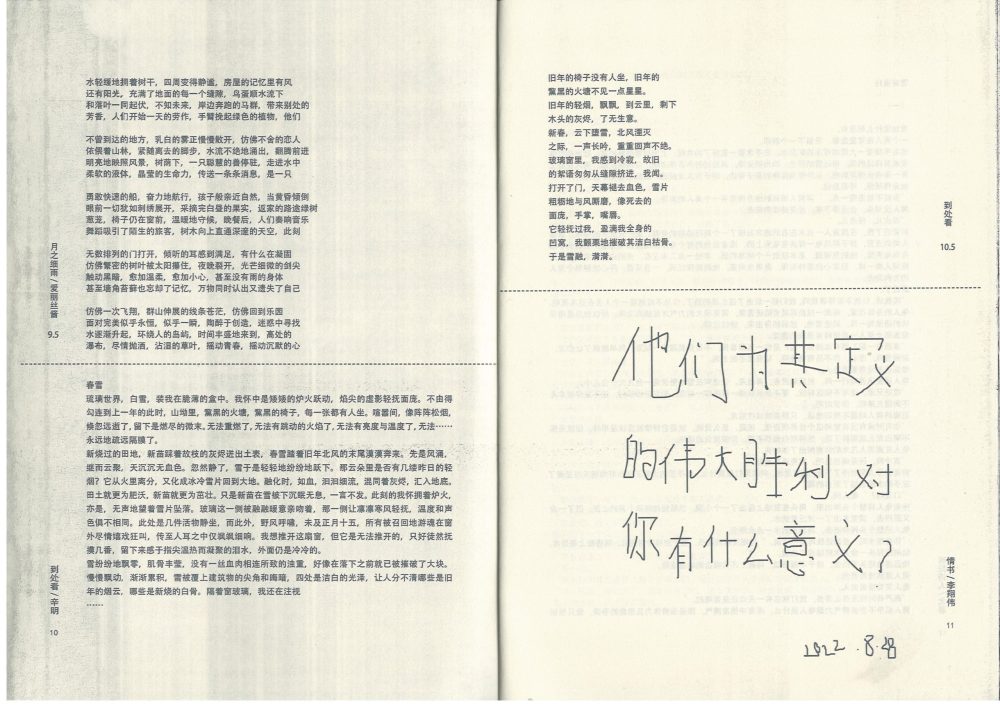 水轻缓地拥着树干，四周变得静谧，房屋的记忆里有风
还有阳光，充满了地面的每一个缝隙，鸟蛋顺水流下
和落叶一同起伏，不知未来，岸边奔跑的马群，带来别处的
芳香，人们开始一天的劳作，手臂挽起绿色的植物，他们
不曾到达的地方，乳白的雾正慢慢散开，仿佛不舍的恋人
依偎着山林，紧随离去的脚步，水流不绝地涌出，翻腾前进
明亮地映照风景，树荫下，一只聪慧的兽停驻，走进水中
柔软的液体，晶莹的生命力，传送一条条消息，是一只
勇敢快速的船，奋力地航行，孩子般亲近自然，当黄昏倾倒
眼前一切犹如刺绣展开，采摘完白昼的果实，返家的路途绿树
葱茏，椅子仍在窗前，温暖地守候，晚餐后，人们奏响音乐
舞蹈吸引了陌生的旅客，树木向上直通深邃的天空，此刻
无数排列的门打开，倾听的耳感到满足，有什么在凝固
仿佛繁密的树叶被太阳攥住，夜晚裂开，光芒细微的剑尖
触动黑暗，愈加温柔，愈加小心，甚至没有雨的身体
甚至墙角苔藓也忘却了记忆，万物同时认出又遗失了自己
仿佛一次飞翔，群山伸展的线条苍茫，仿佛回到乐园
面对完美似乎永恒，似乎一瞬，陶醉于创造，迷惑中寻找
水逐渐升起，环绕人的岛屿，时间丰盛地来到，高处的
瀑布，尽情抛洒，沾湿的草叶，摇动青春，摇动沉默的心
月之细雨/爱丽丝酱
9.5
春雪
琉璃世界，白雪，装我在脆薄的盒中。我怀中是矮矮的炉火跃动，焰尖的虚影轻抚面庞。不由得
勾连到上一年的此时，山坳里，黧黑的火塘，黧黑的椅子，每一张都有人坐。喧嚣间，像阵阵松烟，
倏忽远逝了，留下是燃尽的微末。无法重燃了，无法有跳动的火焰了，无法有亮度与温度了，无法……
永远地疏远隔膜了。
新烧过的田地，新苗踩着故枝的灰烬迸出土表，春雪踏着旧年北风的末尾漠漠奔来。先是风涌，
继而云聚，天沉沉无血色。忽然静了，雪于是轻轻地纷纷地跃下。那云朵里是否有几缕昨日的轻
烟？它从火里离分，又化成冰冷雪片回到大地。融化时，如血，汩汩细流，混同着灰烬，汇入地底。
田土就更为肥沃，新苗就更为茁壮。只是新苗在雪被下沉眠无息，一言不发。此刻的我怀拥着炉火，
亦是，无声地望着雪片坠落。玻璃这一侧被融融暖意亲吻着，那一侧让凛凛寒风轻抚，温度和声
色俱不相同。此处是几件活物静坐，而此外，野风呼啸，未及正月十五，所有被召回地游魂在窗
外尽情嬉戏狂叫，传至人耳之中仅飒飒细响。我想推开这扇窗，但它是无法推开的，只好徒然抚
摸几番，留下来感于指尖温热而凝聚的泪水，外面仍是冷冷的。
雪纷纷地飘零，肌骨丰莹，没有一丝血肉相连所致的浊重，好像在落下之前就已被摧破了大块。
慢慢飘动，渐渐累积，雪被覆上建筑物的尖角和晦暗，四处是洁白的光泽，让人分不清哪些是旧
年的烟云，哪些是新烧的白骨。隔着窗玻璃，我还在注视
……
到处看/辛明
10
旧年的椅子没有人坐，旧年的
黧黑的火塘不见一点星星。
旧年的轻烟，飘飘，到云里，剩下
木头的灰烬，了无生意。
新春，云下堕雪，北风湮灭
之际，一声长吟，重重回声不绝。
玻璃窗里，我感到冷寂，故旧
的絮语匆匆从缝隙挤进，我闻。
打开了门，天幕褪去血色，雪片
粗极地与风厮磨，像死去的
面庞，手掌，嘴唇。
它轻抚过我，盈满我全身的
凹窝，我颤栗地摧破其洁白枯骨。
于是雪融，潸潸。
到处看
10.5
他们为其定义
的伟大胜利对
你有什么意义？
2022.8.28
情书/李翔伟
11